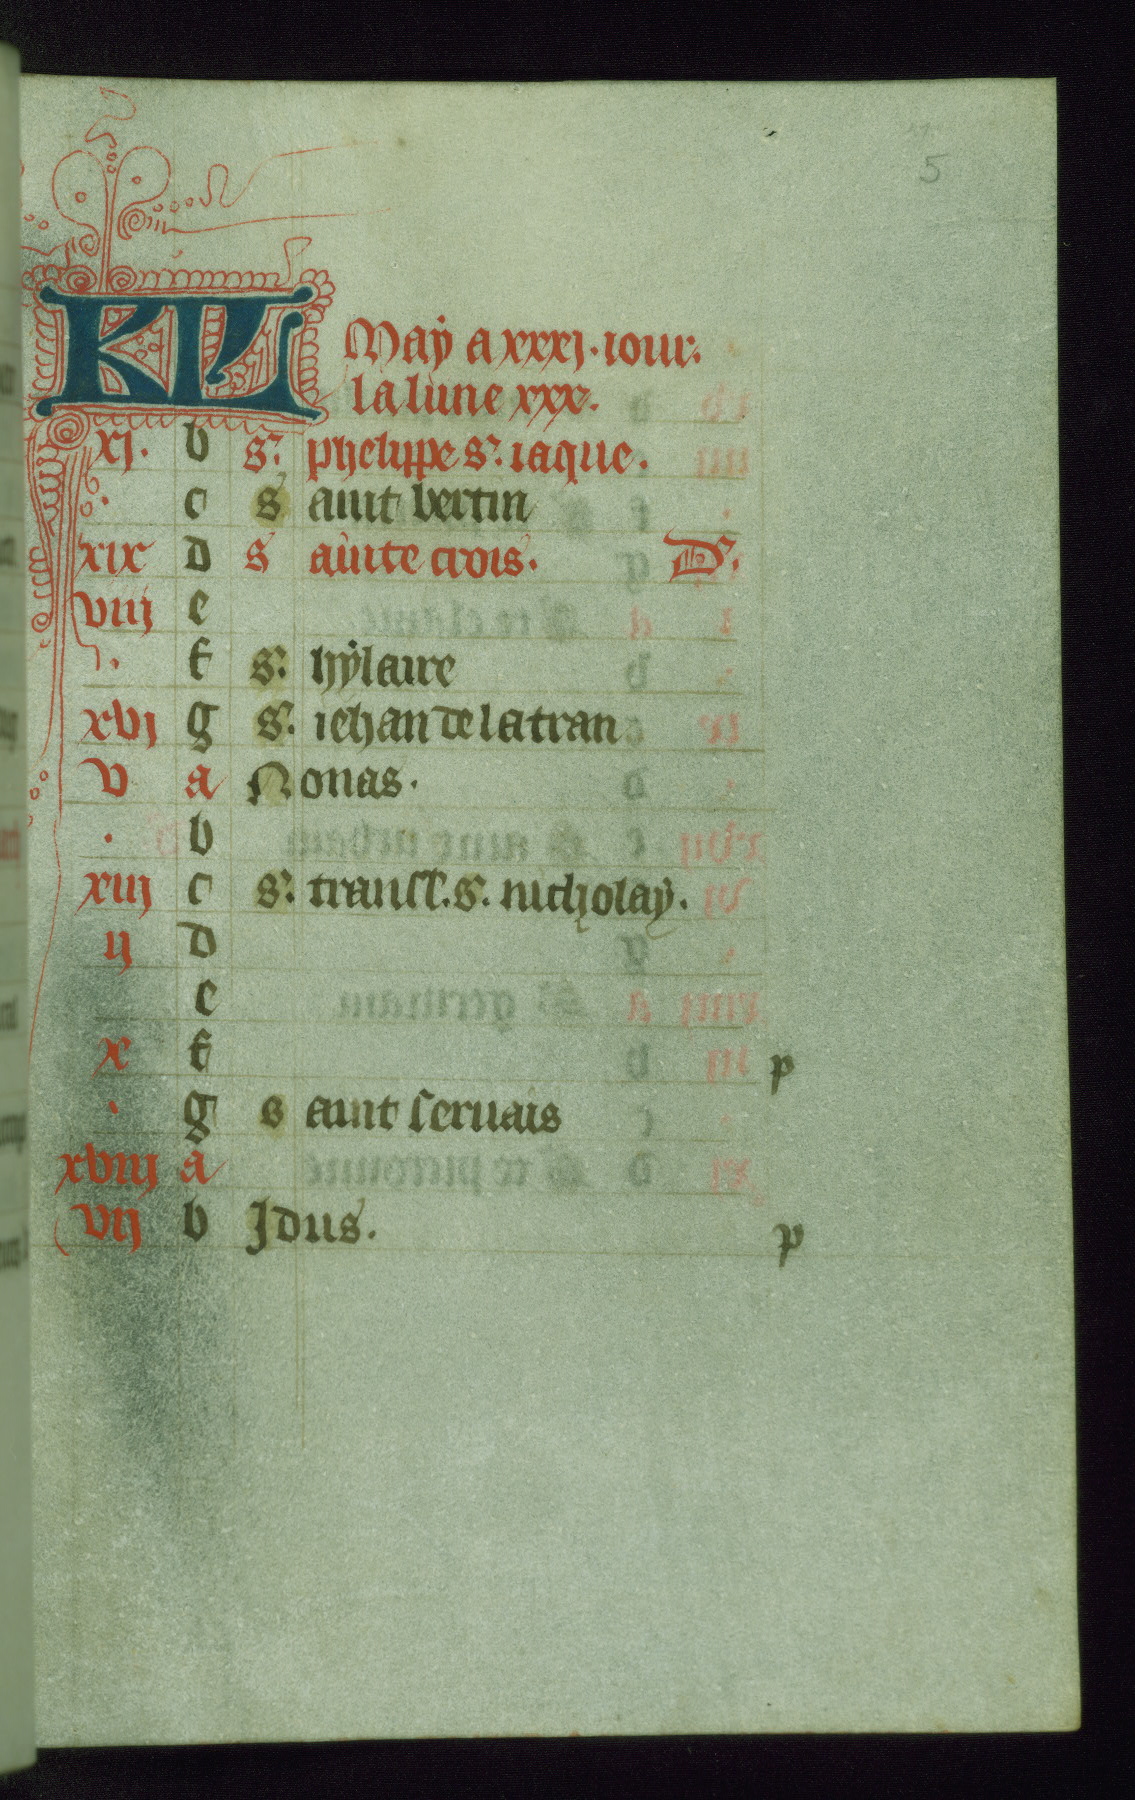 5
KL May a xxxj. iour.
la lune xxx.
xj. b s. phelippe s. iaque.
. c saint bertin
xix d sainte crois. D.
viij e
. f s. hylaire
xvj g s. iehan de latran
v a Nonas.
. b
xiij c s. transl. s. nicholay.
ij d
e
x f p
. g saint seruais
xviij a
vij b Idus. p